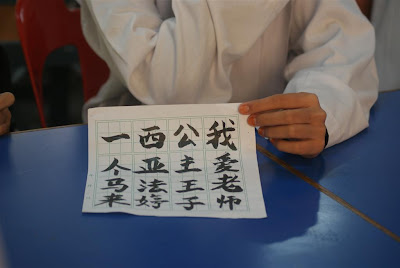 一个马来
西亚法婷
公主王子
我爱老师